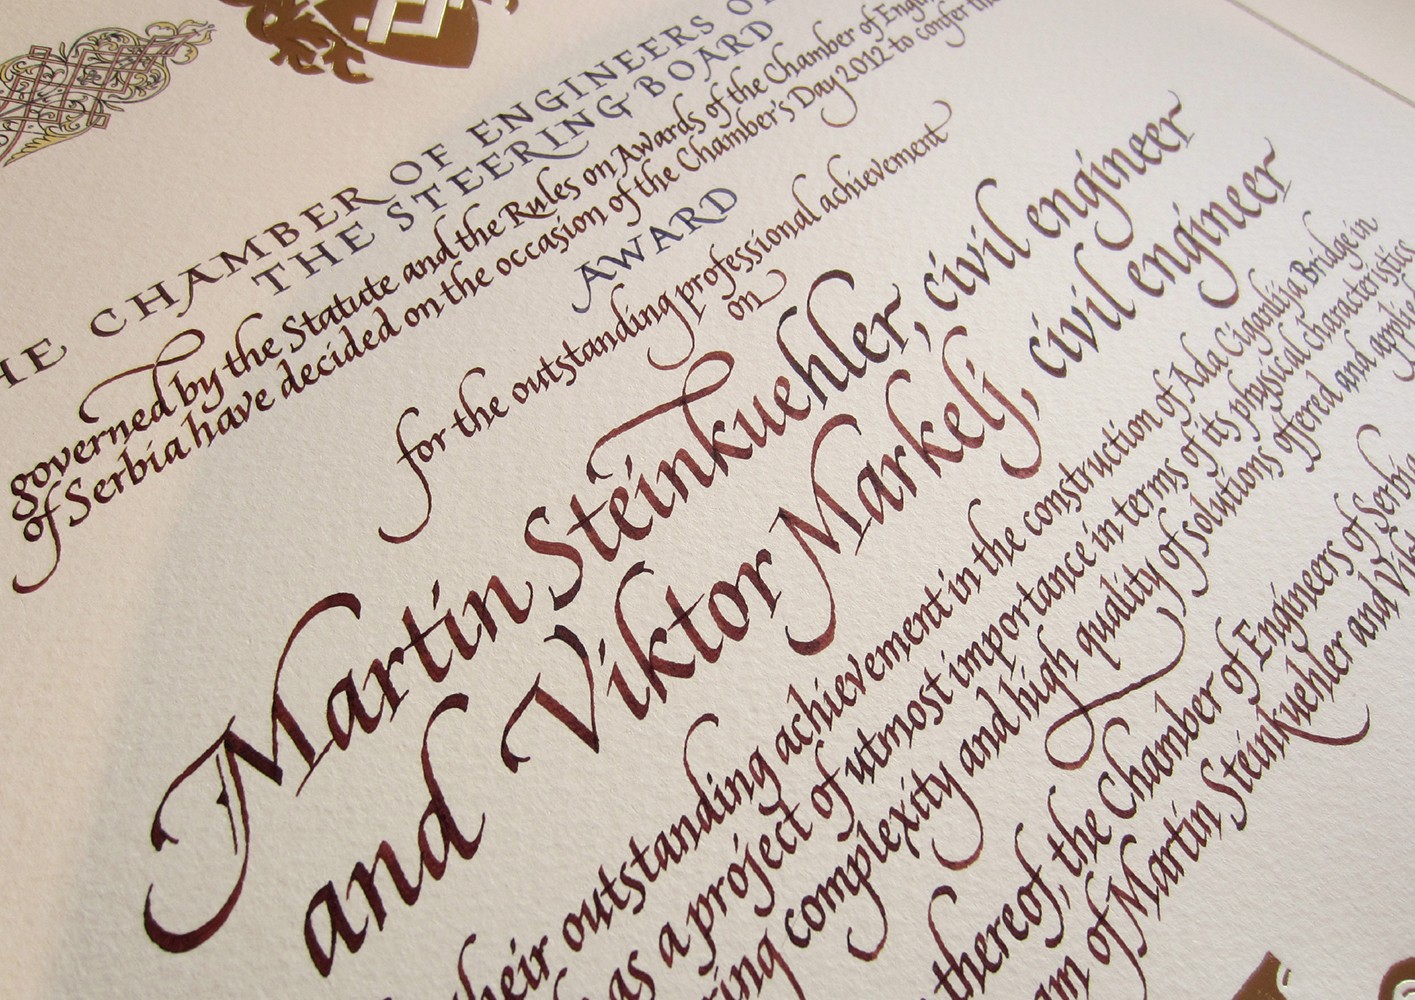 THE CHAMBER OF ENGINEERS
THE STEERING BOARD
governed by the Statute and the Rules on Awards of the Chamber of
of Serbia have decided on the occasion of the Chamber's Day 2012 to confer
AWARD
for the outstanding professional achievement
on
Martin Steinkuehler, civil engineer
and Viktor Markelj, civil engineer
their outstanding achievement in the construction of Ada Ciganlija Bridge in
as a project of utmost importance in terms of its physical characteristics
complexity and high quality of solutions offered and
thereof, the Chamber of Engineers of
of Martin Steinkuehler and